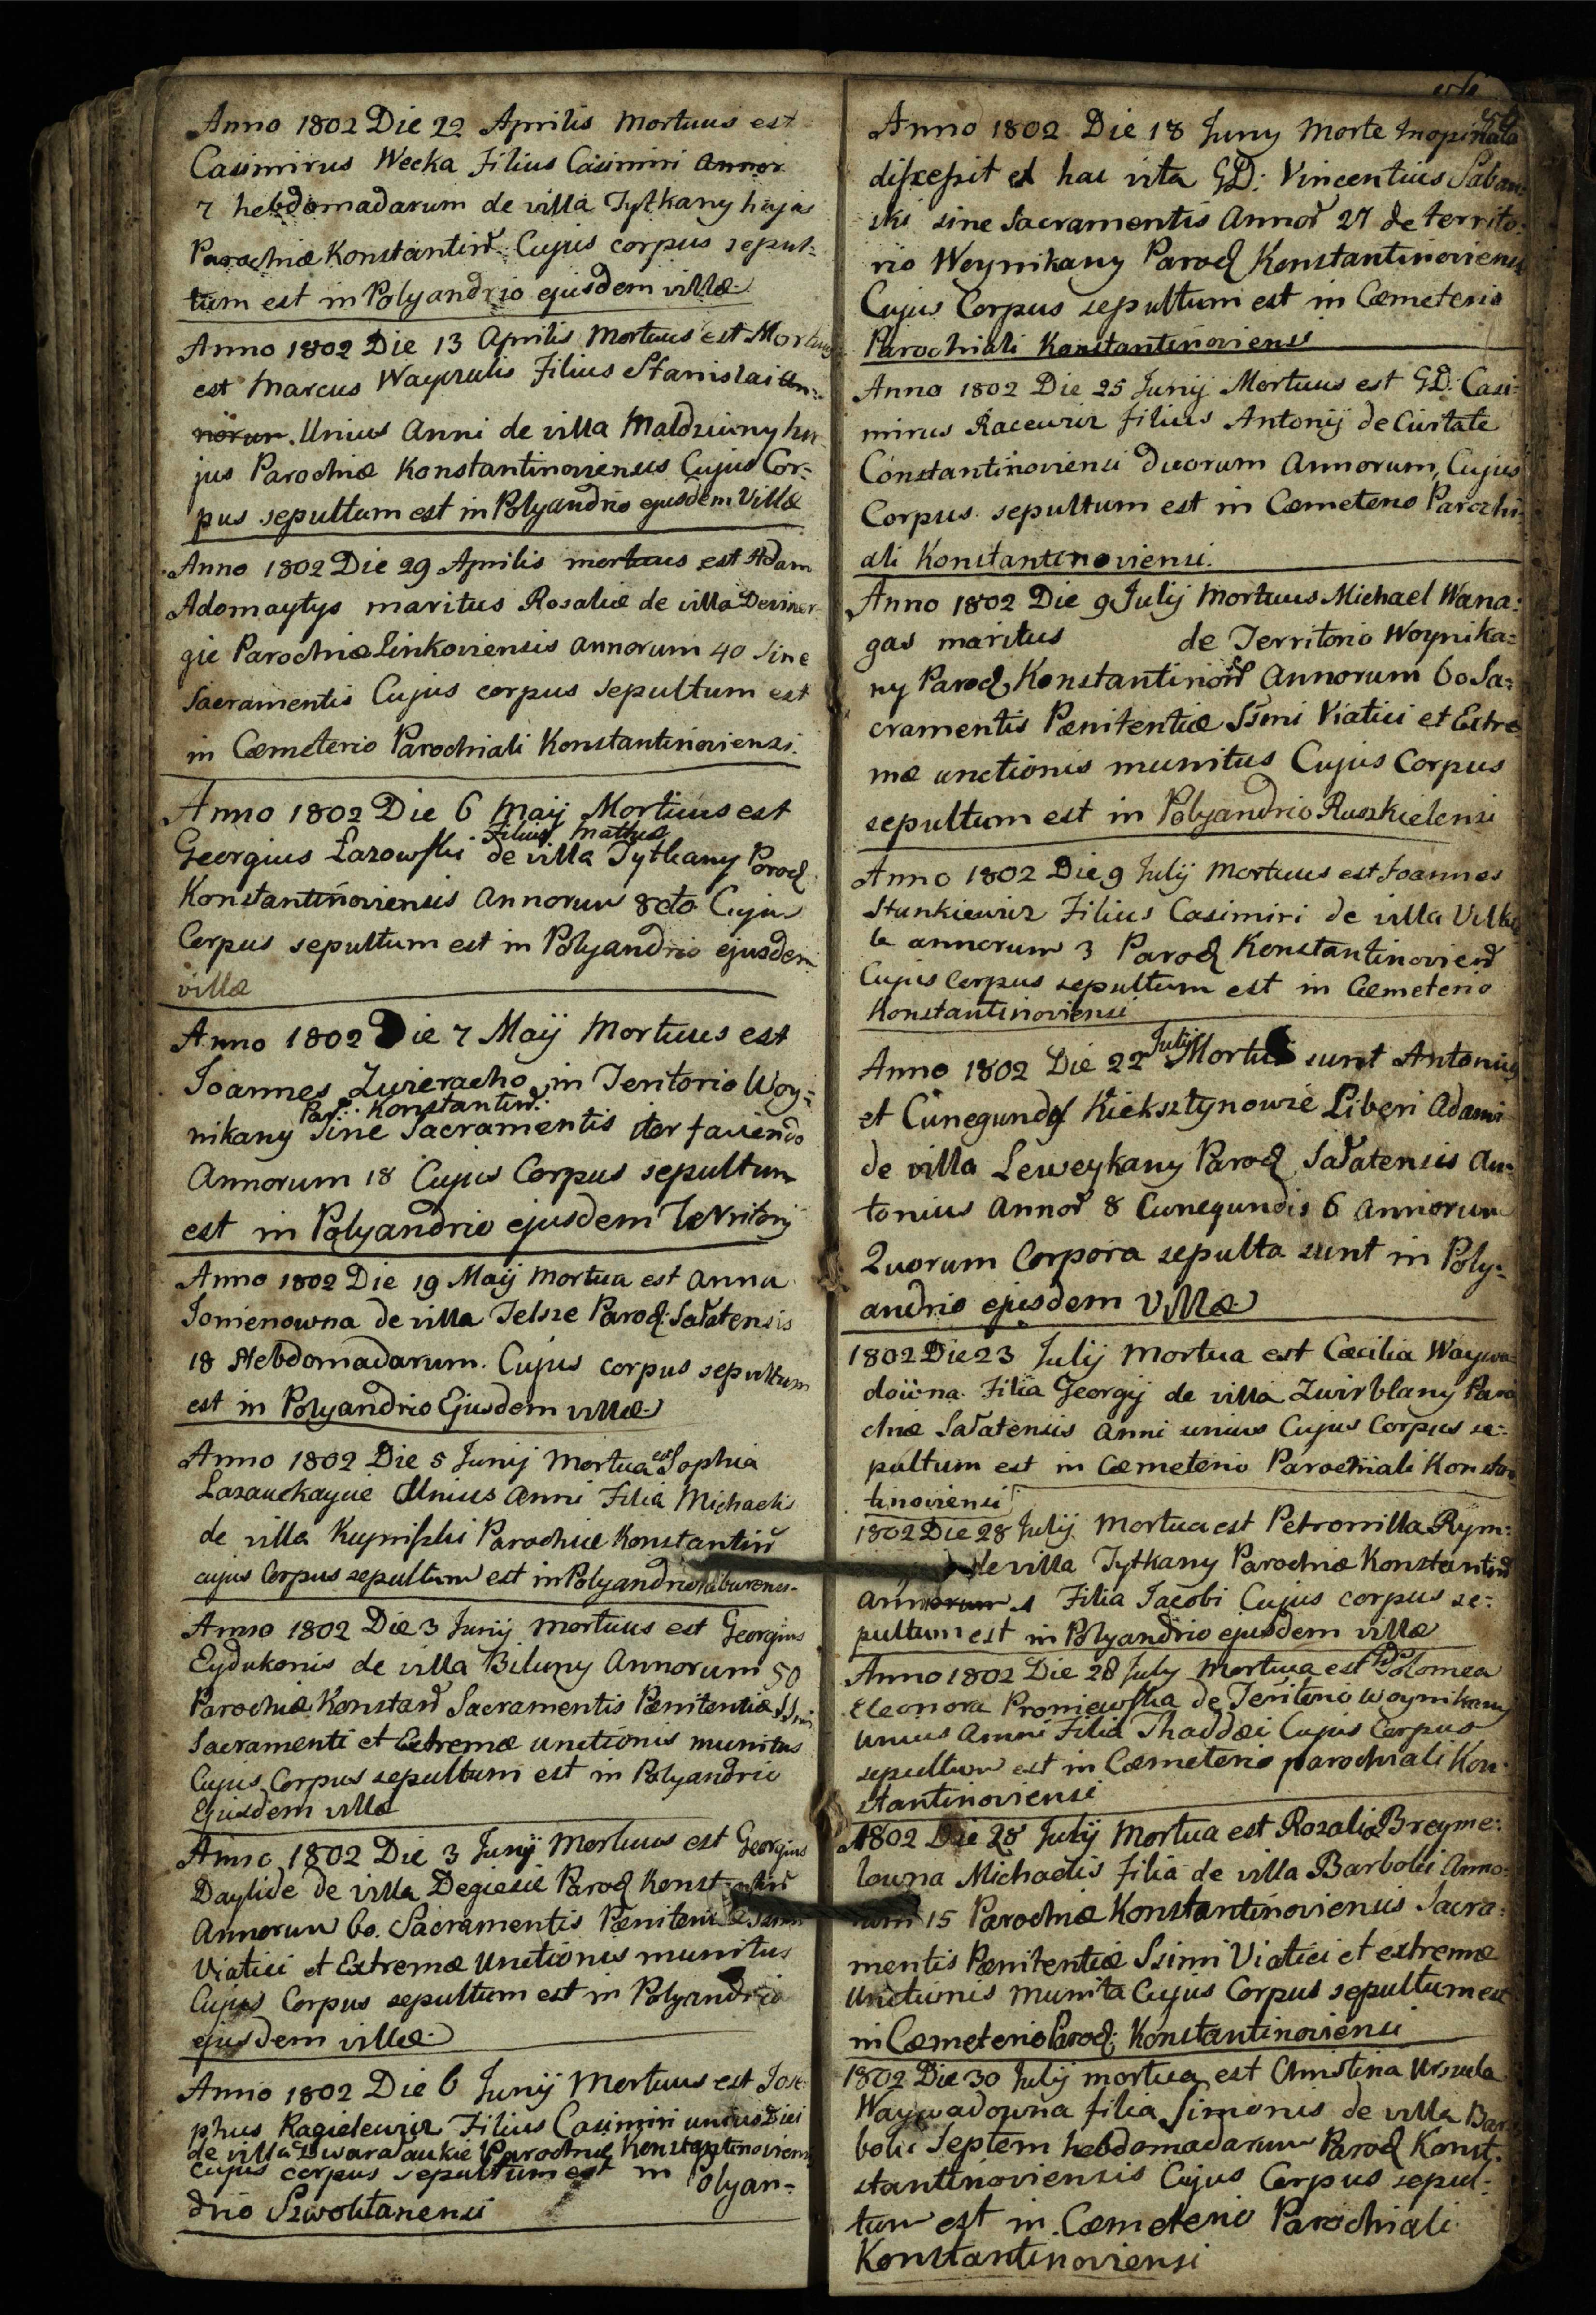 Anno 1802 Die 22 Aprilis Mortuus est
Casimirus Wecka Filius Casimiri Annor
7 hebdomadarum de villa Tytkany hujus
Parochiæ Konstantin: Cujus corpus sepul-
tum est in Polyandrio ejusdem villæ
Anno 1802 Die 13 Aprilis Mortuus est Mortuus
est Marcus Wayczulis Filius Stanislai An-
norum. Unius Anni de villa Maldziuny hu-
jus Parochiæ Konstantinoviensis Cujus Cor-
pus sepultum est in Polyandrio ejusdem Villæ
Anno 1802 Die 29 Aprilis mortuus est Adam
Adomaytys maritus Rosaliæ de villa Deviner
gie Parochiæ Linkoviensis annorum 40 Sine
Sacramentis Cujus corpus sepultum est
in Cæmeterio Parochiali Konstantinoviensi.
Anno 1802 Die 6 Maij Mortuus est
Filius Mathiæ
Georgius Lazowski de villa Tytkany Paroch
Konstantinoviensis Annorum 8cto Cujus
Corpus sepultum est in Polyandrio ejusdem
villæ
Anno 1802 Die 7 Maij Mortuus est
Joannes Zwieracho in Teritorio Woy-
Par: Konstantin:
nikany Sine Sacramentis iter faciendo
Annorum 18 Cujus Corpus sepultum
est in Polyandrio ejusdem Territorij
Anno 1802 Die 19 Maij Mortua est Anna
Jonienowna de villa Telsze Paroch: Sałatensis
18 Hebdomadarum. Cujus corpus sepultum
est in Polyandrio Ejusdem villæ
Anno 1802 Die 5 Junij Mortua est Sophia
Lazauckayue Unius Anni Filia Michaelis
de villa Kuyniszki Parochiæ Konstantin
cujus Corpus sepultum est in Polyandrio
Anno 1802 Die 3 Junij mortuus est Georgius
Eydukonis de villa Biluny Annorum 50
Parochiæ Konstan Sacramentis Pænitentiæ SSmi
Sacramenti et Extremæ unctionis munitus
Cujus Corpus sepultum est in Polyandrio
Ejusdem villæ
Anno 1802 Die 3 Junij Mortuus est Georgius
Daylide de villa Degiesie Paroch Konstantin
Annorum 60. Sacramentis Pænitentiæ Ssimi
Viatici et Extremæ Unctionis munitus
Cujus Corpus sepultum est in Polyandrio
ejusdem villæ
Anno 1802 Die 6 Junij Mortuus est Jose-
phus Ragielewicz Filius Casimiri unius Diei
de villa Dwarałaukie Parochiæ Konstantinoviens
cujus corpus sepultum est in Polyan-
drio Szwoltanensi
Anno 1802 Die 18 Juny Morte Inopinata
discessit ex hac vita GD: Vincentius Saban-
ski sine Sacramentis Annor 27 de territo-
rio Woynikany Paroch Konstantinoviensis
Cujus Corpus sepultum est in Cæmeterio
Parochiali Konstantinoviensi
Anno 1802 Die 25 Junij Mortuus est GD: Casi-
mirus Racewicz Filius Antonij de Civitate
Constantinoviensi duorum Annorum, Cujus
Corpus sepultum est in Cæmeterio Parochi-
ali Konstantinoviensi.
Anno 1802 Die 9 Julij Mortuus Michael Wana:
gas maritus de Territorio Woynika=
ny Paroch Konstantinov Annorum 60 Sa=
cramentis Pænitentiæ Ssmi Viatici et Extre
mæ unctionis munitus Cujus Corpus
sepultum est in Polyandrio Ruszkielensi
Anno 1802 Die 9 Julij Mortuus est Joannes
Stunkiewicz Filius Casimiri de villa Vilka
le annorum 3 Paroch Konstantinovien
Cujus Corpus sepultum est in Cæmeterio
Konstantinoviensi
Anno 1802 Die 22 Julij Mortui sunt Antonius
et Cunegundis Kieksztynowie Liberi Adami
de villa Leweykany Paroch Sałatensis An-
tonius Annor 8 Cunegundis 6 Annorum
Quorum Corpora sepulta sunt in Poly-
andrio ejusdem Villæ
1802 Die 23 Julij Mortua est Cæcilia Waywa-
downa Filia Georgij de villa Zwirblany Paro
chiæ Sałatensis Anni unius Cujus Corpus se-
pultum est in Cæmeterio Parochiali Konstan
tinoviensi
1802 Die 28 Julij Mortua est Petronilla Rym:
de villa Tytkany Parochiæ Konstantin
Annorum 1 Filia Jacobi Cujus corpus se-
pultum est in Polyandrio ejusdem villæ
Anno 1802 Die 28 July Mortua est GD Polomea
Eleonora Proniewska de Teritorio Woynikany
Unius Anni Filia Thaddæi Cujus Corpus
sepultum est in Cæmeterio parochiali Kon-
stantinoviensi
1802 Die 28 Julij Mortua est Rozalia Breyme:
lowna Michaelis Filia de villa Barbolii Anno-
rum 15 Parochiæ Konstantinoviensis Sacra-
mentis Pænitentiæ Ssimi Viatici et extremæ
Unctionis munita Cujus Corpus sepultum est
in Cæmeterio Paroch: Konstantinoviensi
1802 Die 30 Julij mortua est Christina Urszula
Waywadowna filia Simonis de villa Bar
bolii Septem hebdomadarum Paroch Konst-
stantinoviensis Cujus Corpus sepul-
tum est in Cæmeterio Parochiali
Konstantinoviensi